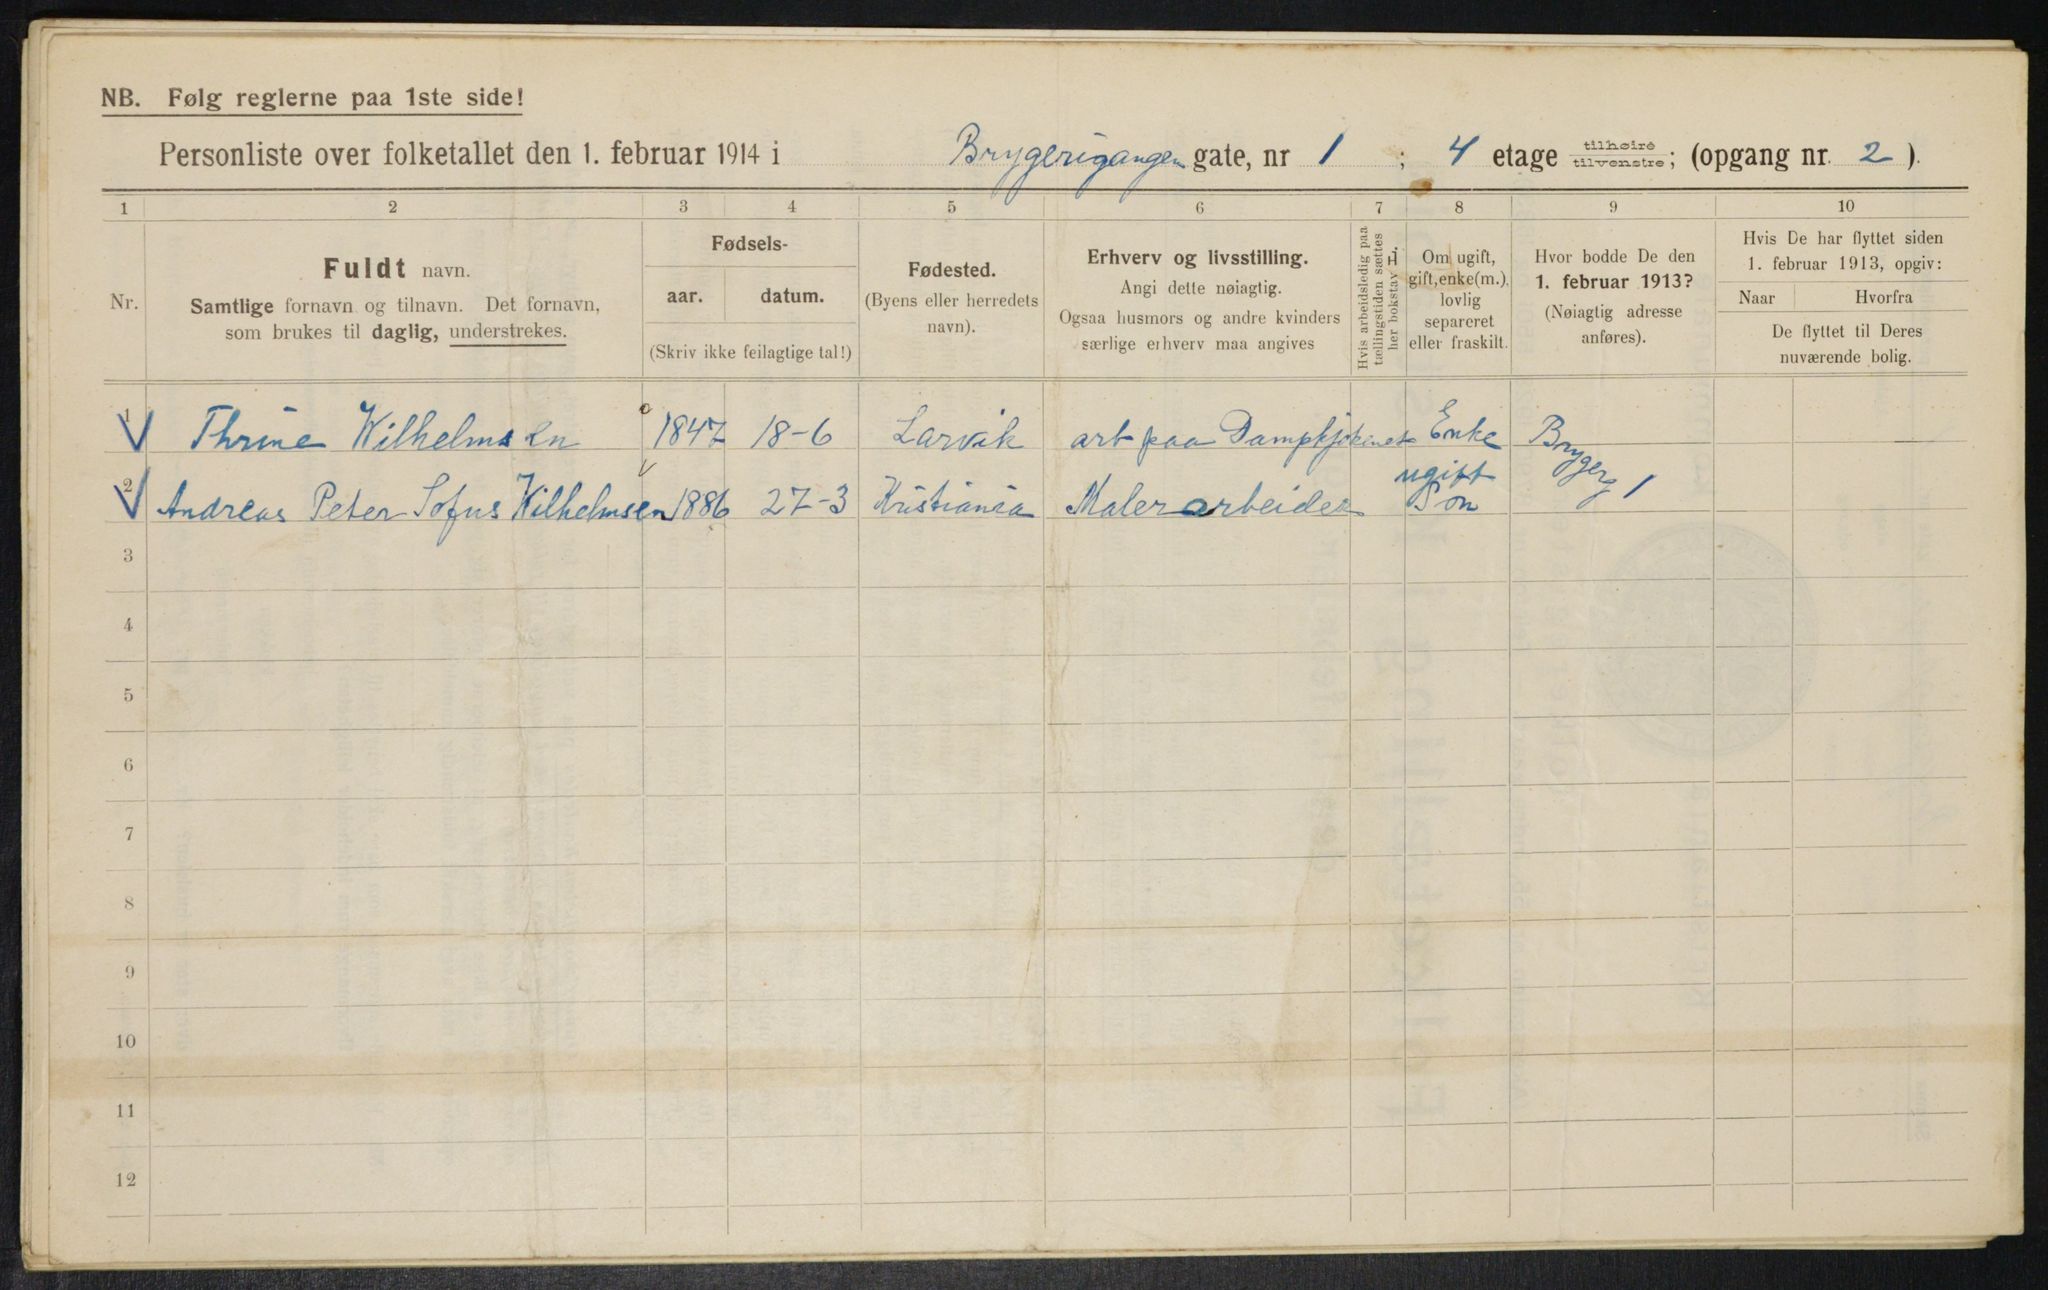 NB. Følg reglerne paa 1ste side!
Personliste over folketallet den 1. februar 1914 i Brygerigangen gate, nr 1 ; 4 etage tilhøire tilvenstre; (opgang nr. 2 ).
1 2 3 4 5 6 7 8 9 10
Nr.
Fuldt navn.
Samtlige fornavn og tilnavn. Det fornavn,
som brukes til daglig, understrekes.
Fødsels-
aar. datum.
(Skriv ikke feilagtige tal!)
Fødested.
(Byens eller herredets
navn).
Erhverv og livsstilling.
Angi dette nøiagtig.
Ogsaa husmors og andre kvinders
særlige erhverv maa angives
Hvis arbeidsledig paa
tællingstiden sættes
her bokstav L.
Om ugift,
gift, enke(m.),
lovlig
separeret
eller fraskilt.
Hvor bodde De den
1. februar 1913?
(Nøiagtig adresse
anføres).
Hvis De har flyttet siden
1. februar 1913, opgiv:
Naar Hvorfra
De flyttet til Deres
nuværende bolig.
1 Thrine Wilhelmsen 1847 18-6 Larvik arb paa Dampkjøkenet Enke Brygerg 1
2 Andreas Peter Sofus Wilhelmsen 1886 27-3 Kristiania Malerarbeider ugift Søn
3
4
5
6
7
8
9
10
11
12